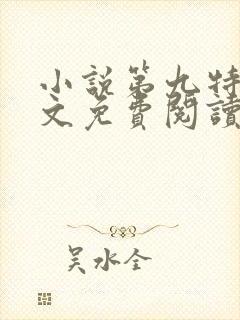 小説第九特
文免費閱讀
吴水全